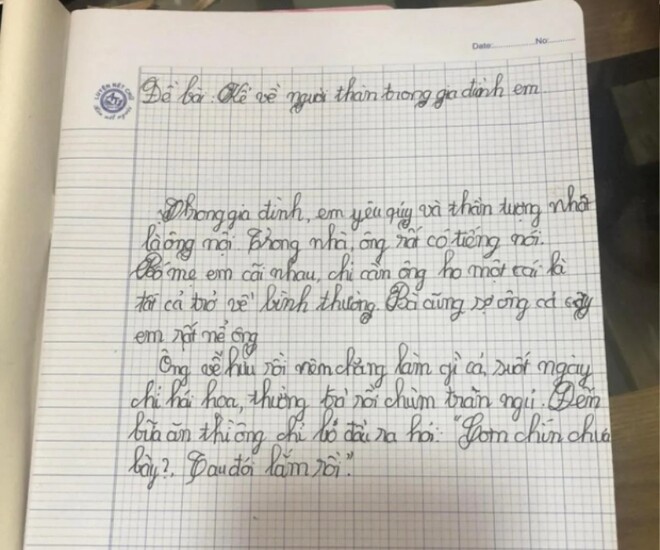 Date: No:
LUYỆN NÉT CHỮ
Đề bài: Kể về người thân trong gia đình em
Trong gia đình, em yêu quý và thần tượng nhất
là ông nội. Trong nhà, ông rất có tiếng nói.
Bố mẹ em cãi nhau, chỉ cần ông ho một cái là
tất cả trở về bình thường. Bà cũng sợ ông
em rất nể ông
Ông về hưu rồi nên chẳng làm gì cả, suốt ngày
chỉ hái hoa, thưởng trà rồi chùm chăn ngủ. Đến
bữa ăn thì ông chỉ ló đầu ra hỏi: "Cơm chín chưa
bây?. Tau đói lắm rồi".